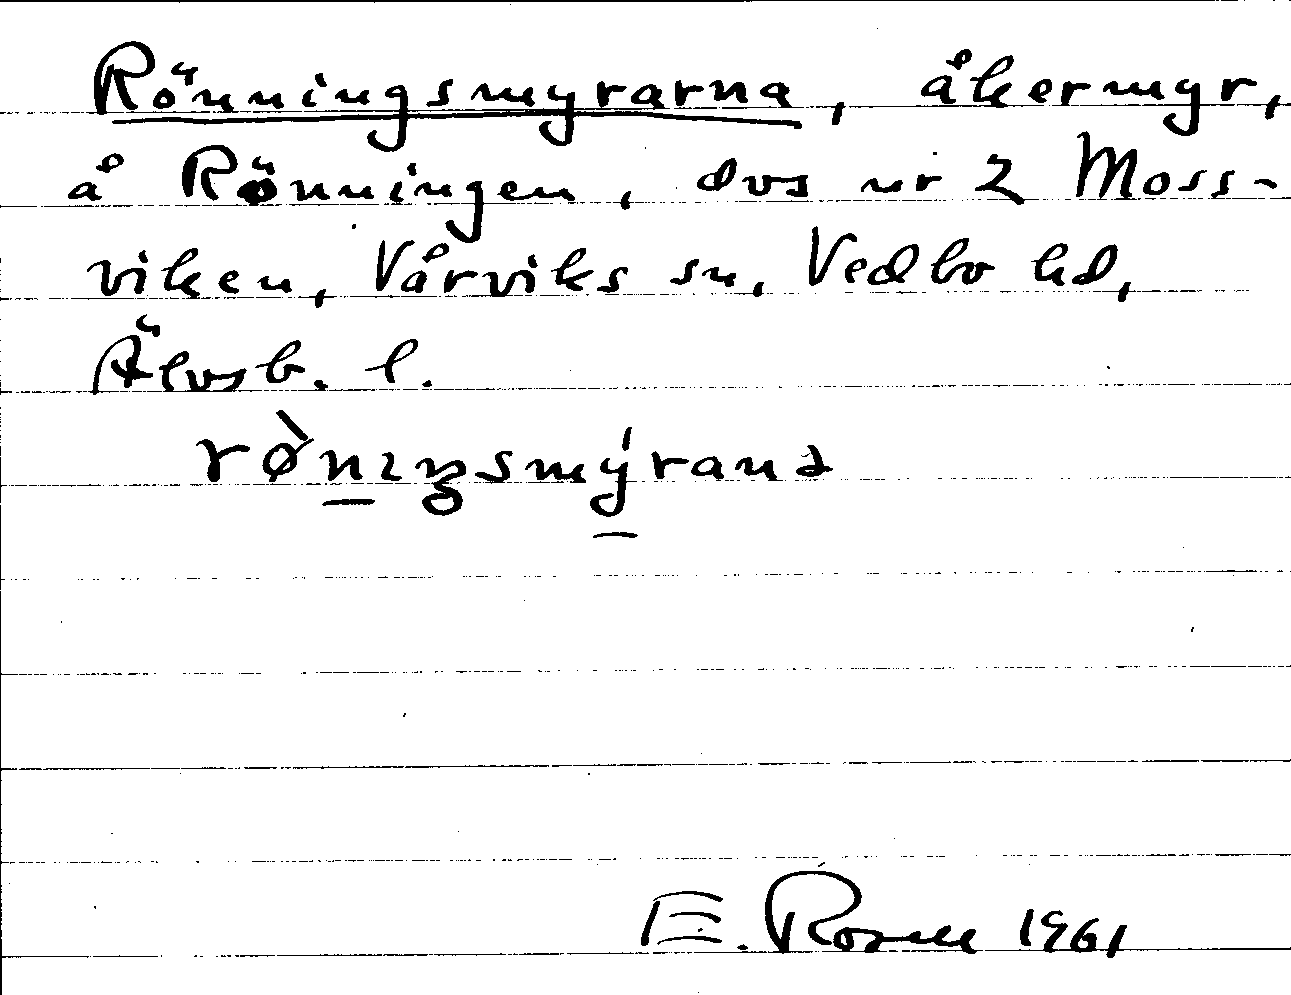 Rönningsmyrarna, åkermyr,
å Rönningen, dvs nr 2 Moss-
viken, Vårviks sn, Vedbo hd,
Älvsb. l.
rø̀nıŋsmýranə
E. Rosell 1961